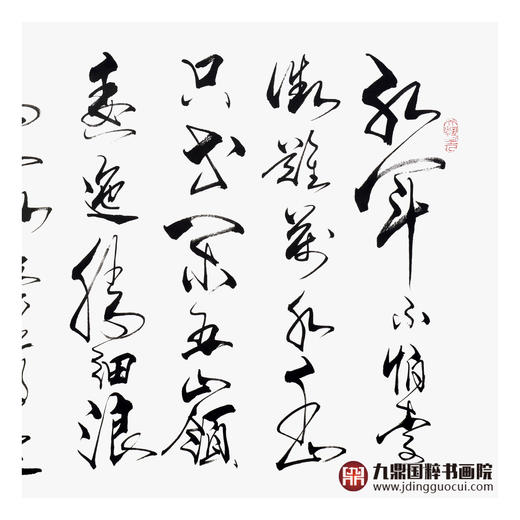 紅軍不怕遠
征難萬水千山
只等閑五嶺
逶迤騰細浪
九鼎国粹书画院
www.jdingguocui.com